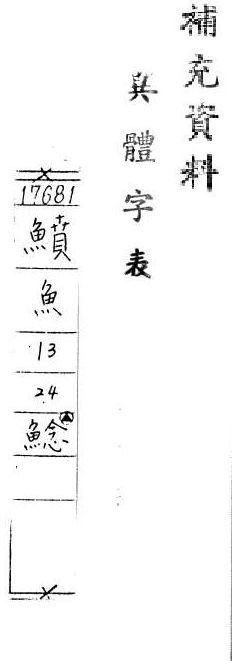 補充資料
異體字表
17681
鱝
魚
13
24
鯰